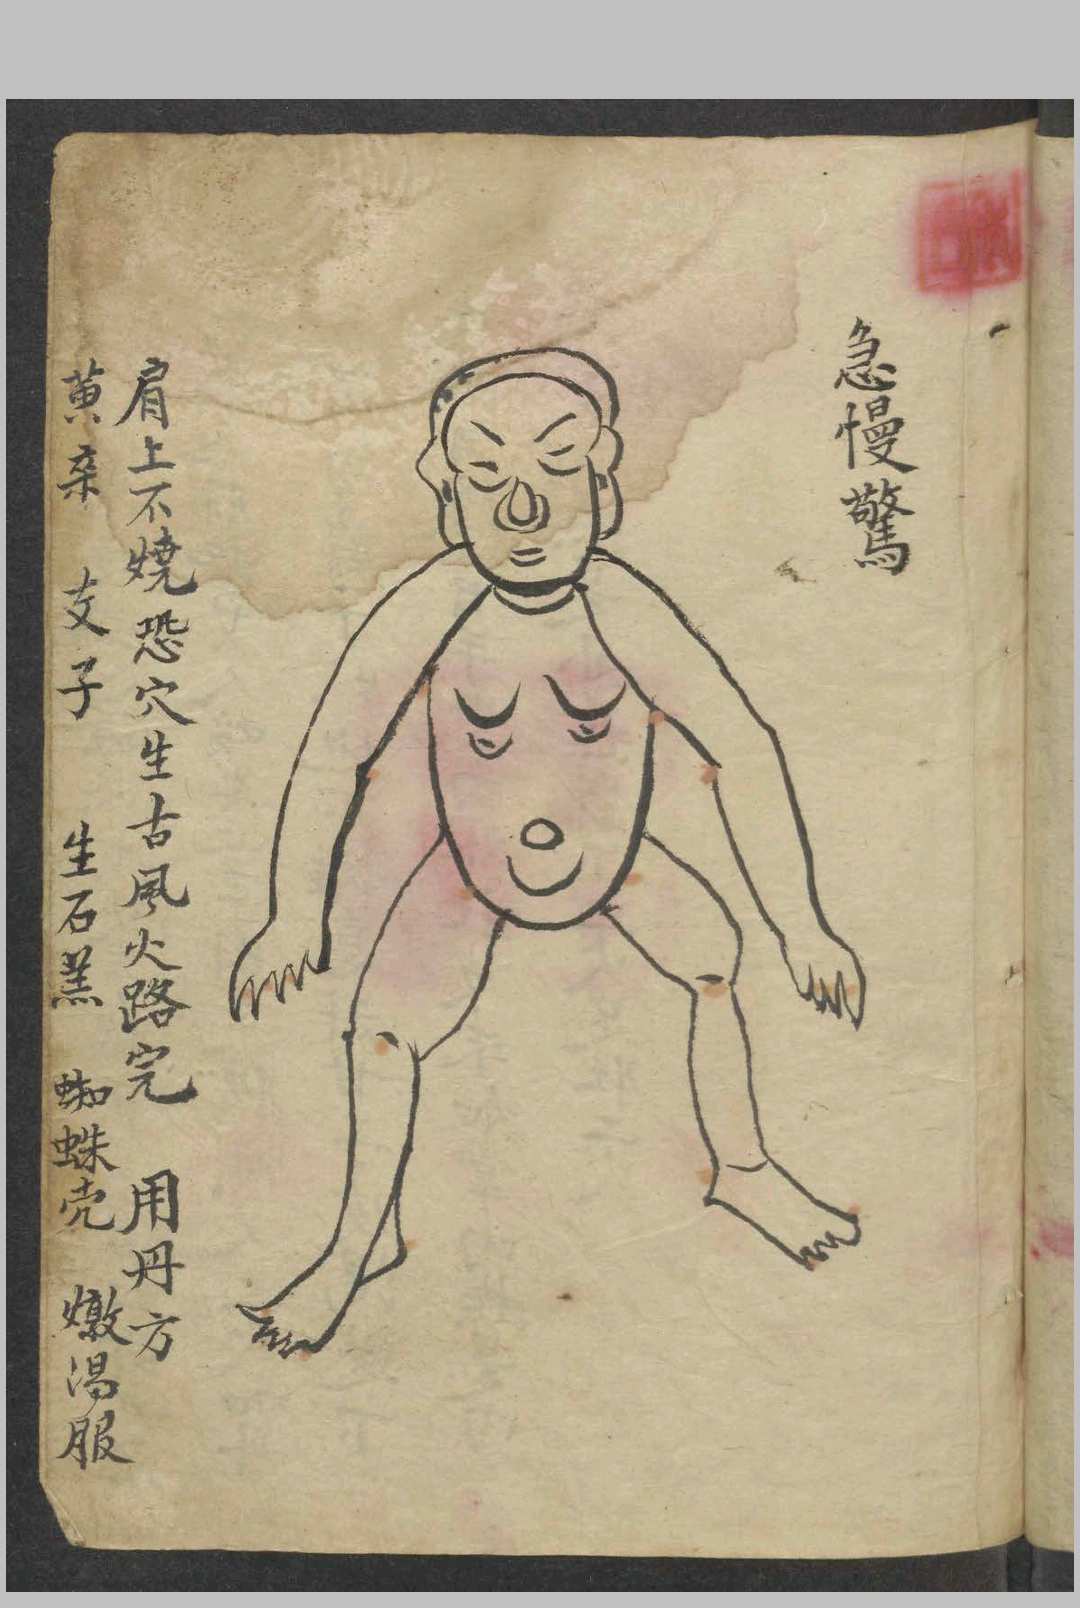 急慢驚
肩上不燒恐穴生古風火路完 用丹方
黄卒 支子 生石羔 蜘蛛壳 燉湯服